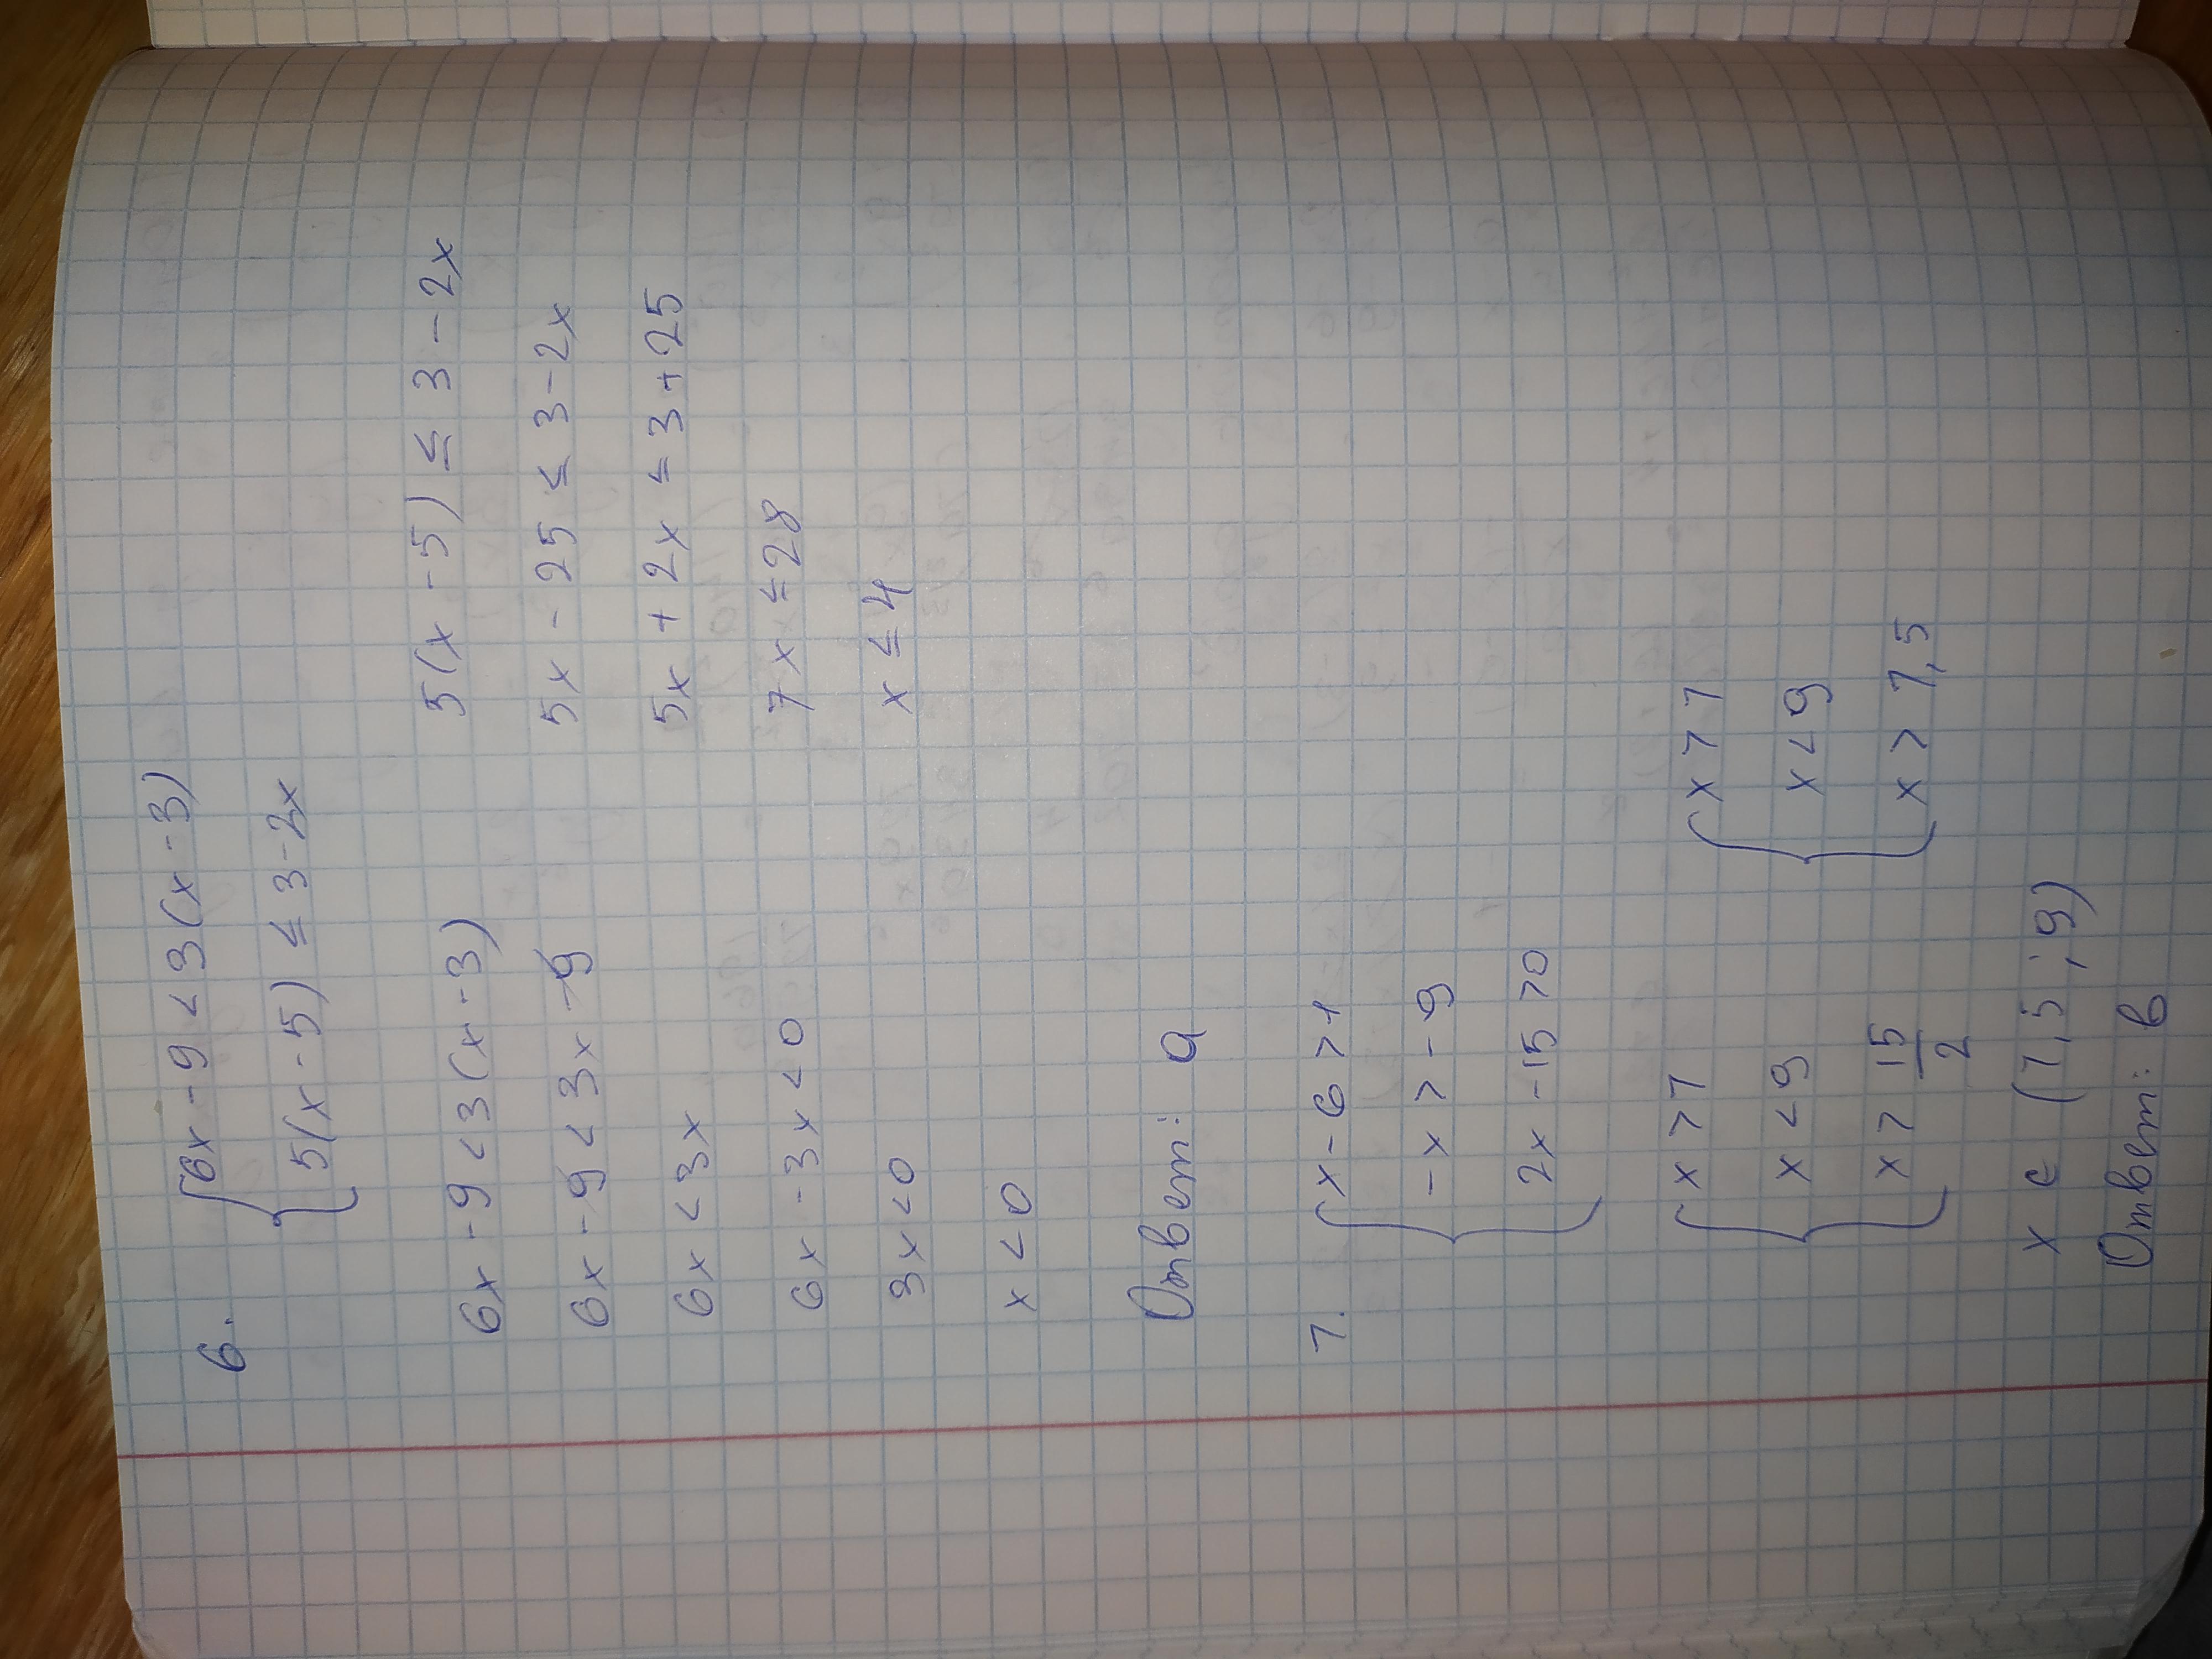 6. {6x - 9 < 3(x - 3)
5(x - 5) ≤ 3 - 2x
6x - 9 < 3(x - 3)
6x - 9 < 3x - 9
6x < 3x
6x - 3x < 0
3x < 0
x < 0
5(x - 5) ≤ 3 - 2x
5x - 25 ≤ 3 - 2x
5x + 2x ≤ 3 + 25
7x ≤ 28
x ≤ 4
Ответ: а
7. {x - 6 > 1
-x > -9
2x - 15 > 0
{x > 7
x < 9
x > 15/2
{x > 7
x < 9
x > 7,5
x є (7,5 ; 9)
Ответ: в